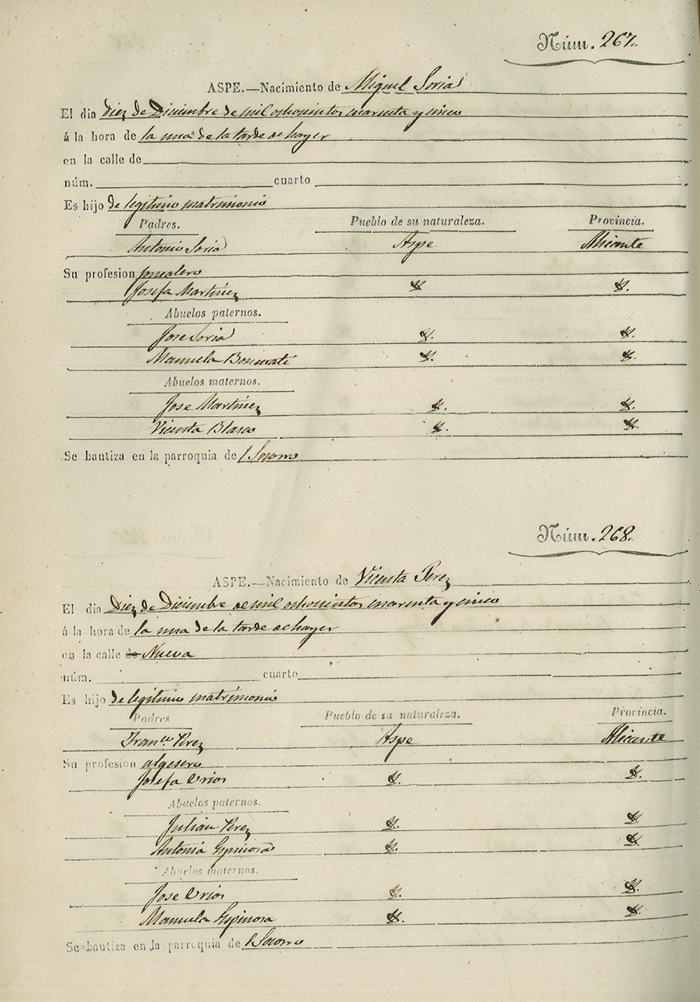 Núm. 267.
ASPE.—Nacimiento de Miguel Soria
El dia diez de Diciembre de mil ochocientos cuarenta y cinco
á la hora de la una de la tarde de hayer
en la calle de
núm. cuarto
Es hijo de legitimo matrimonio
Padres. Pueblo de su naturaleza. Provincia.
Antonio Soria Aspe Alicante
Su profesion jornalero
Josefa Martinez
Abuelos paternos.
Jose Soria
Manuela
Abuelos maternos.
Jose Martinez
Vicenta Blasco
Se bautiza en la parroquia del Socorro
Núm. 268.
ASPE.—Nacimiento de Vicenta Perez
El dia Diez de Diciembre de mil ochocientos cuarenta y cinco
á la hora de la una de la tarde de hayer
en la calle de Nueva
núm. cuarto
Es hijo de legitimo matrimonio
Padres Pueblo de su naturaleza. Provincia.
Franco Perez Aspe Alicante
Su profesion algesero
Josefa Erios
Abuelos paternos.
Julian Perez
Antonia Espinosa
Abuelos maternos.
Jose Erios
Manuela Espinosa
Se bautiza en la parroquia de l Socorro